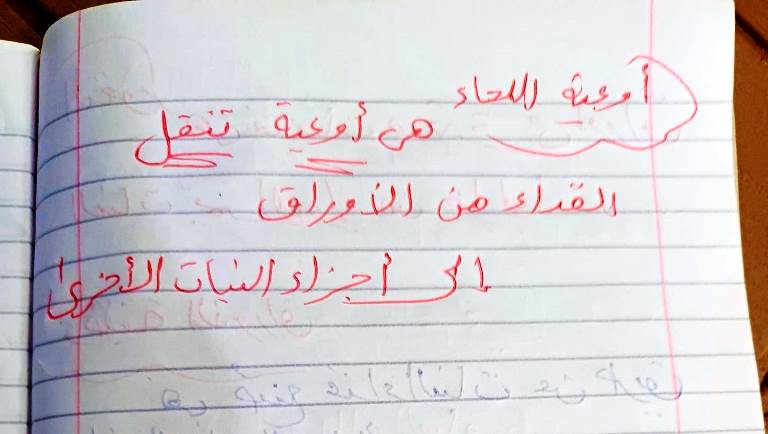 أوعية اللحاء
هي أوعية تنقل
الغداء من الأوراق
الى أجزاء النبات الأخرى